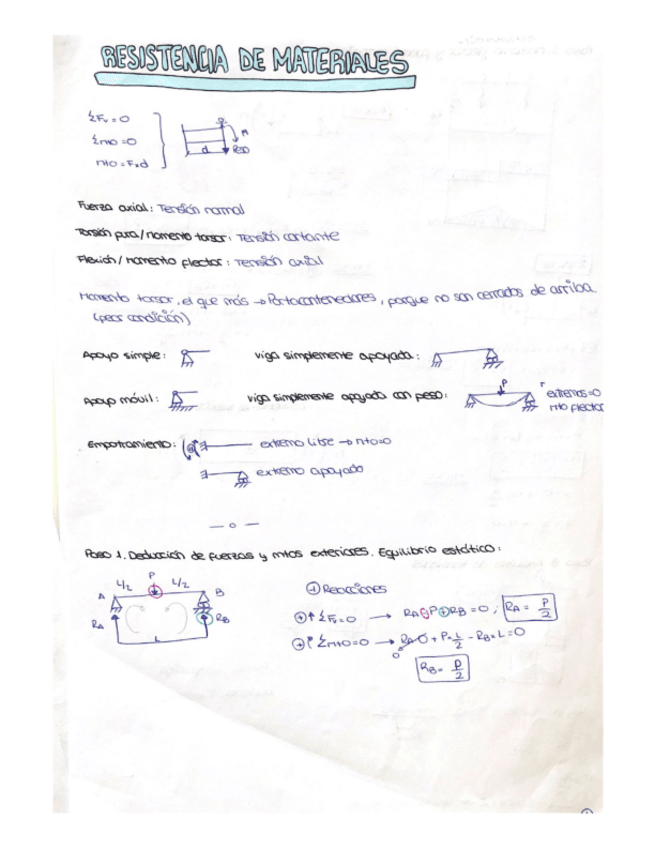 RESISTENCIA DE MATERIALES
ΣFv = 0
ΣMto = 0
Mto = F x d
d
Fuerza axial: Tensión normal
Torsión pura/momento torsor: Tensión cortante
Flexión/momento flector: Tensión axial
Momento torsor, el que más → Portacontenedores, porque no son cerrados de arriba
(peor condición)
Apoyo simple: viga simplemente apoyada:
Apoyo móvil: viga simplemente apoyada con peso: P extremos=0
mto flector
Empotramiento: extremo libre → mto=0
extremo apoyado
— o —
Paso 1. Deducción de fuerzas y mtos exteriores. Equilibrio estático:
L/2 P L/2
A B
RA RB
L
Reacciones
+↑ ΣFv=0 → RA - P + RB = 0 ; RA = P/2
+ ΣMto=0 → RA·0 + P·L/2 - RB·L = 0
0
RB = P/2